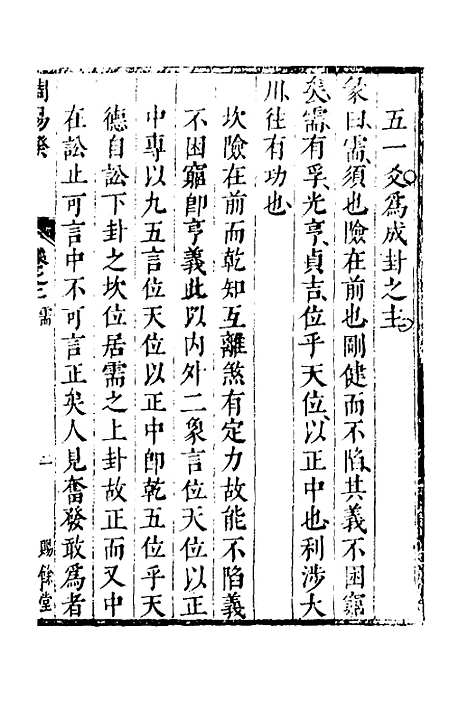 五一爻爲成卦之主
彖曰需須也險在前也剛健而不陷其義不困窮
矣需有孚光亨貞吉位乎天位以正中也利涉大
川往有功也
坎險在前而乾知互離煞有定力故能不陷義
不困窮即亨義此以内外二象言位天位以正
中專以九五言位天位以正中即乾五位乎天
德自訟下卦之坎位居需之上卦故正而又中
在訟止可言中不可言正矣人見奮發敢爲者
周易揆
卷之二 需
二
賜餘堂